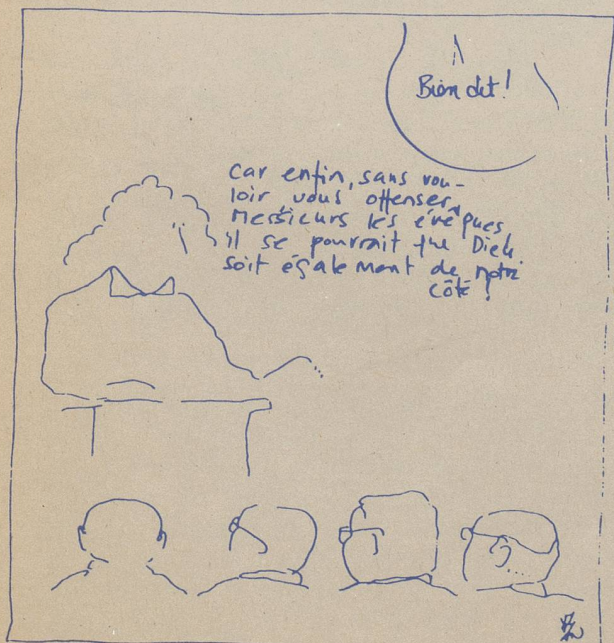 Bien dit !
Car enfin, sans vou-
loir vous offenser,
Messieurs les évêques
il se pourrait que Dieu
soit également de notre
côté !